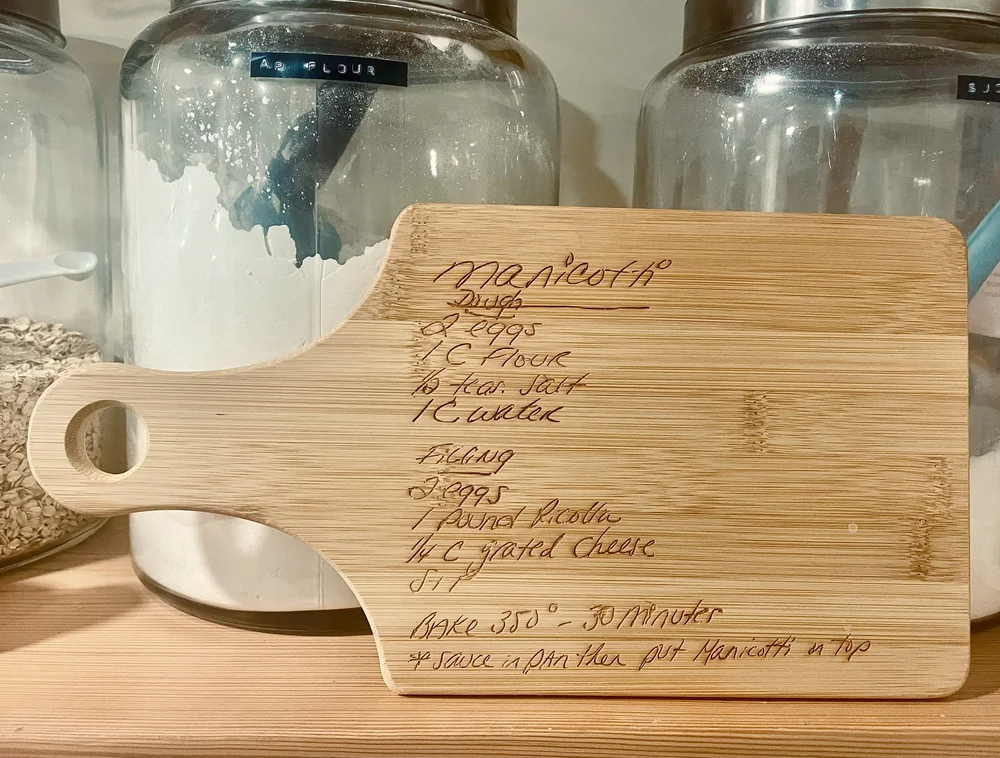 AP FLOUR
Manicotti
Dough
2 eggs
1 C Flour
1/2 teas. salt
1 C water
Filling
2 eggs
1 pound Ricotta
1/4 C grated cheese
Bake 350° - 30 Minutes
* sauce in pan then put Manicotti on top